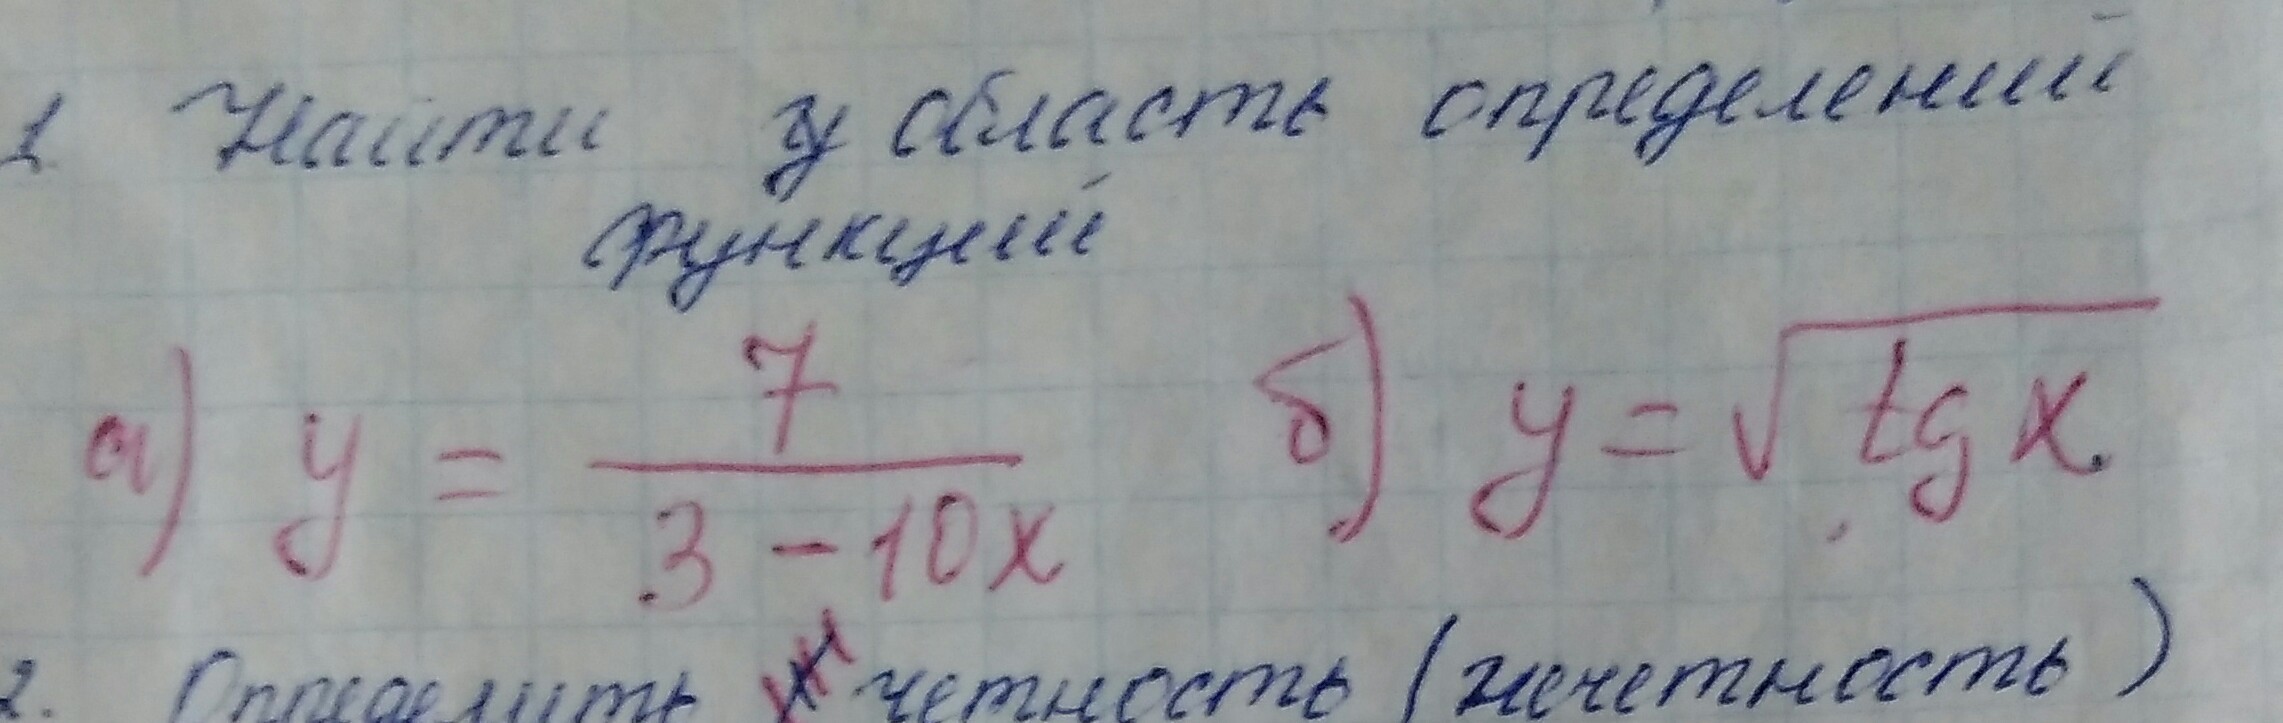 1. Найти область определений
функций
а) y = 7 / (3 - 10x) б) y = √(tg x)
2. Определить четность (нечетность)